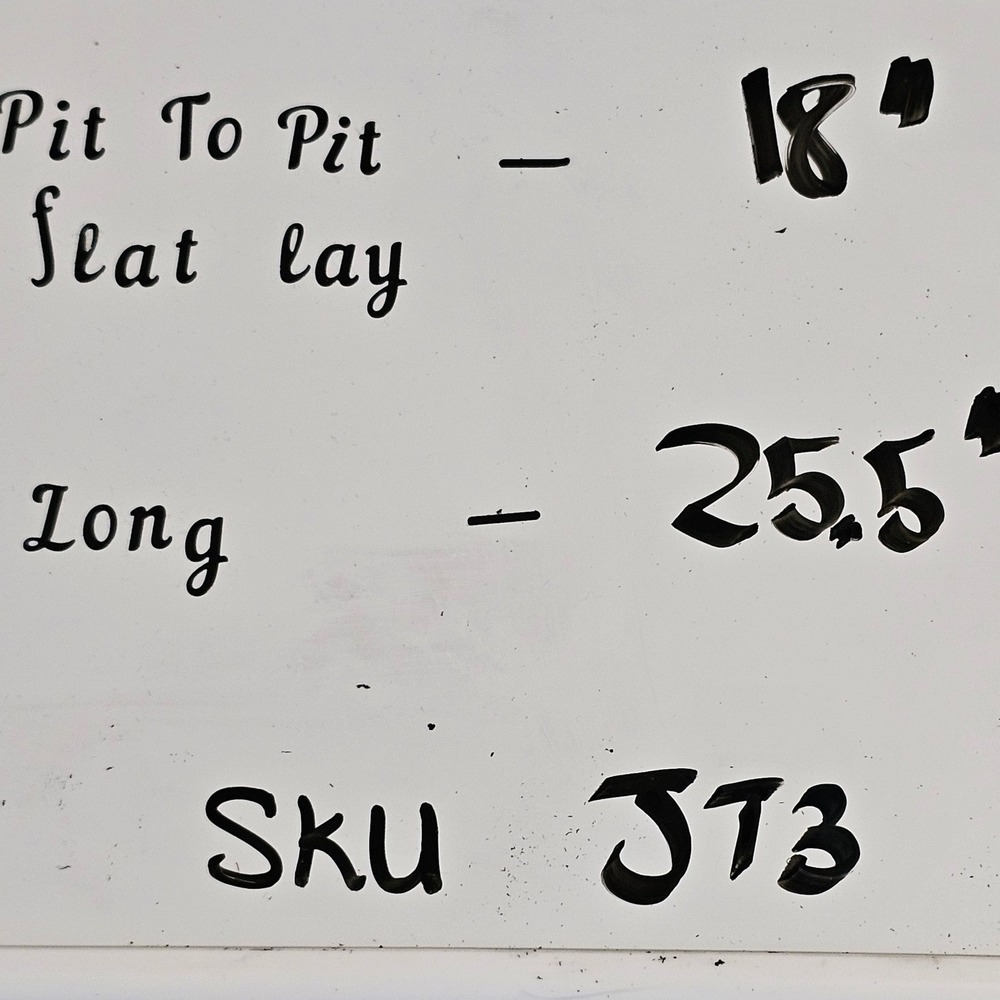 Pit To Pit - 18"
flat lay
Long - 25.5"
SKU JT3